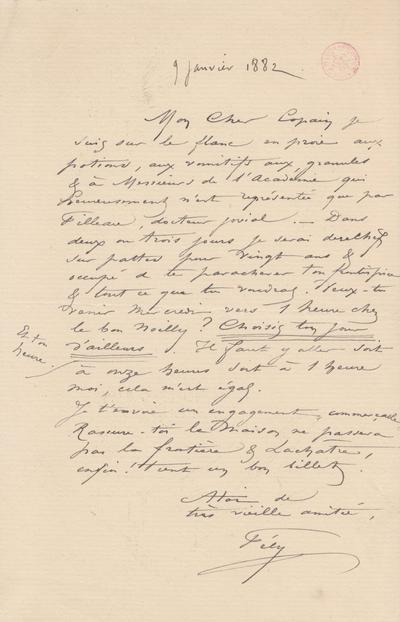 9 Janvier 1882
Mon Cher Copain je
suis sur le flanc en proie aux
potions, aux vomitifs aux granules
& à Messieurs de l'Académie qui
heureusement n'est représentée que par
Filleau, docteur jovial. — Dans
deux ou trois jours je serai derechef
sur pattes pour vingt ans &
occupé de te parachever ton
& tout ce que tu voudras. Veux-tu
venir Mercredi vers 1 heure chez
le bon Noilly ? Choisis ton jour
d'ailleurs. Il faut y aller soit
Et ton
heure.
à onze heures soit à 1 heure
moi, cela m'est égal.
Je t'envoie un engagement,
Rassure-toi la Maison ne passera
pas la frontière & Lachâtre,
enfin ! tient un bon billet.
A toi de
très vieille amitié,
Fély